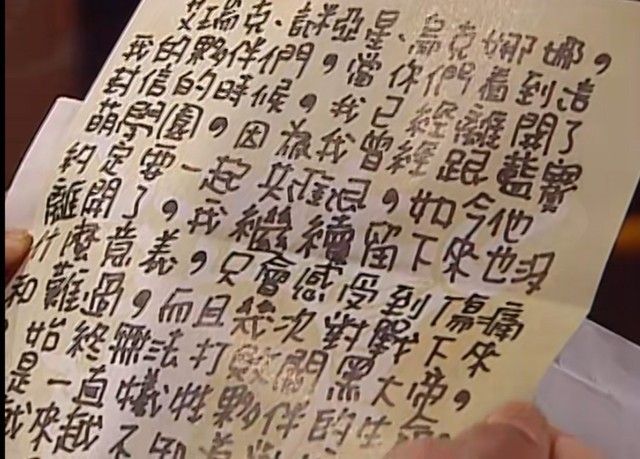 艾瑞克、謎亞星、烏克娜娜，
我的夥伴們，當你們看到這
封信的時候，我已經離開了
萌學園，因為我曾經跟藍寶
約定要一起共進退，如今他
離開了，我繼續留下來也沒
什麼意義，只會感受到傷痛
和難過，而且幾次對戰下來
，始終無法打敗闇黑大帝，
是一直犧牲夥伴的生命，
我來越不知道